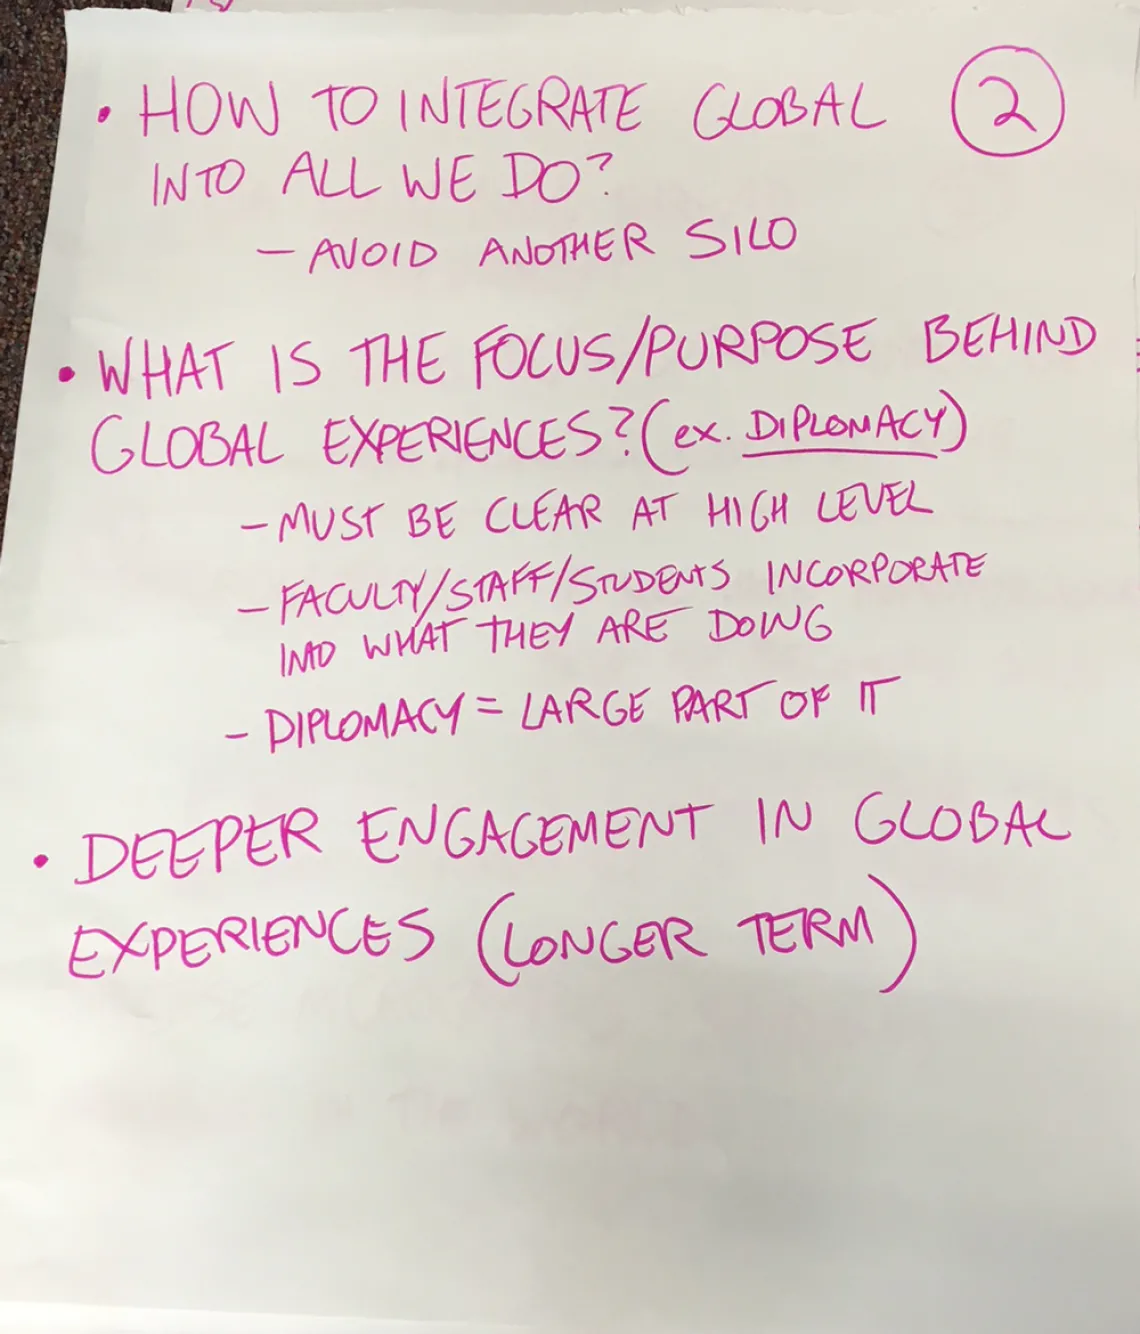 • HOW TO INTEGRATE GLOBAL ②
INTO ALL WE DO?
- AVOID ANOTHER SILO
• WHAT IS THE FOCUS/PURPOSE BEHIND
GLOBAL EXPERIENCES? (ex. DIPLOMACY)
- MUST BE CLEAR AT HIGH LEVEL
- FACULTY/STAFF/STUDENTS INCORPORATE
INTO WHAT THEY ARE DOING
- DIPLOMACY = LARGE PART OF IT
• DEEPER ENGAGEMENT IN GLOBAL
EXPERIENCES (LONGER TERM)